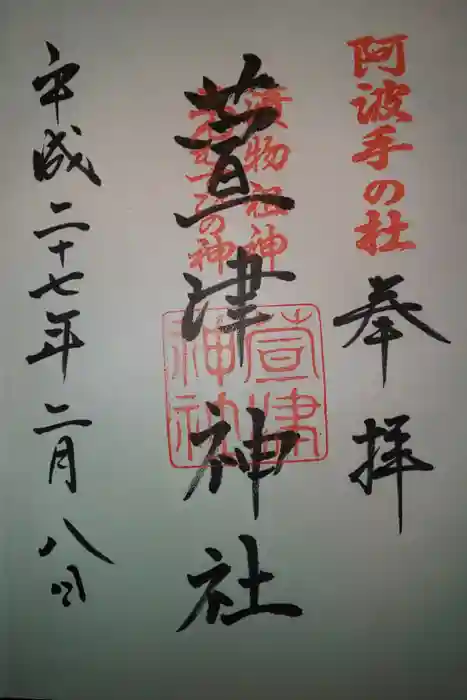 阿波手の杜
奉拝
漬物祖神
萱津神社
萱津神社
平成二十七年二月八日